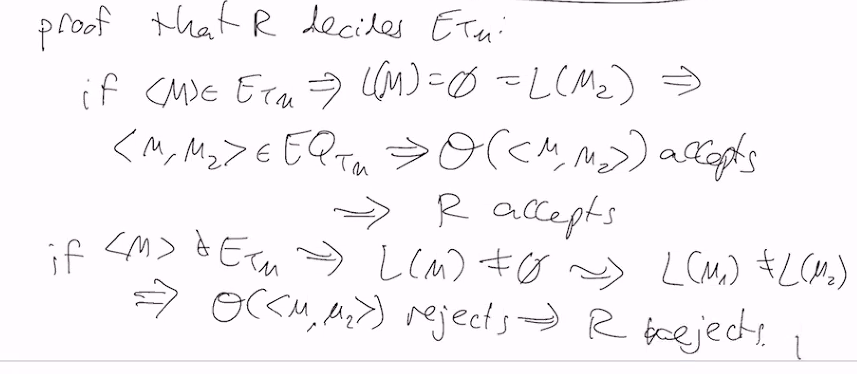 proof that R decides E_TM:
if <M> ∈ E_TM ⇒ L(M) = ∅ = L(M₂) ⇒
<M, M₂> ∈ EQ_TM ⇒ O(<M, M₂>) accepts
⇒ R accepts
if <M> ∉ E_TM ⇒ L(M) ≠ ∅ ⇒ L(M₁) ≠ L(M₂)
⇒ O(<M, M₂>) rejects ⇒ R rejects.